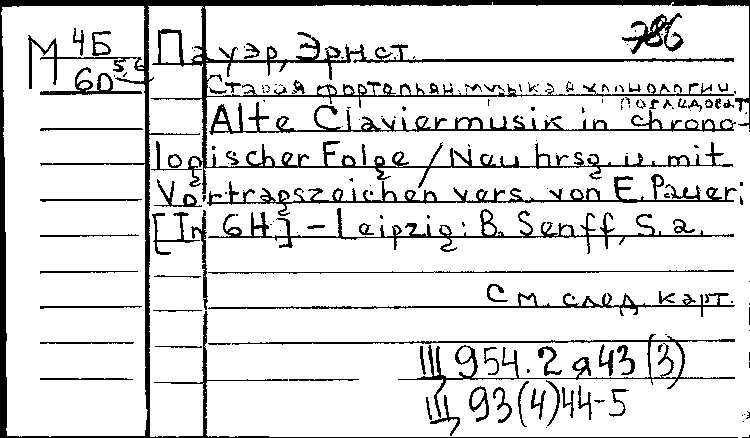 М 4Б
60 56
786
Пауэр, Эрнст.
Старая фортепьян. музыка в хронологии.
последоват
Alte Claviermusik in chrono-
logischer Folge / Neu hrsg. u. mit
Vortragszeichen vers. von E. Pauer;
[In 6H] – Leipzig: B. Senff, S. a.
См. след. карт.
Щ 954.2 я43 (3)
Щ 93(4)44-5